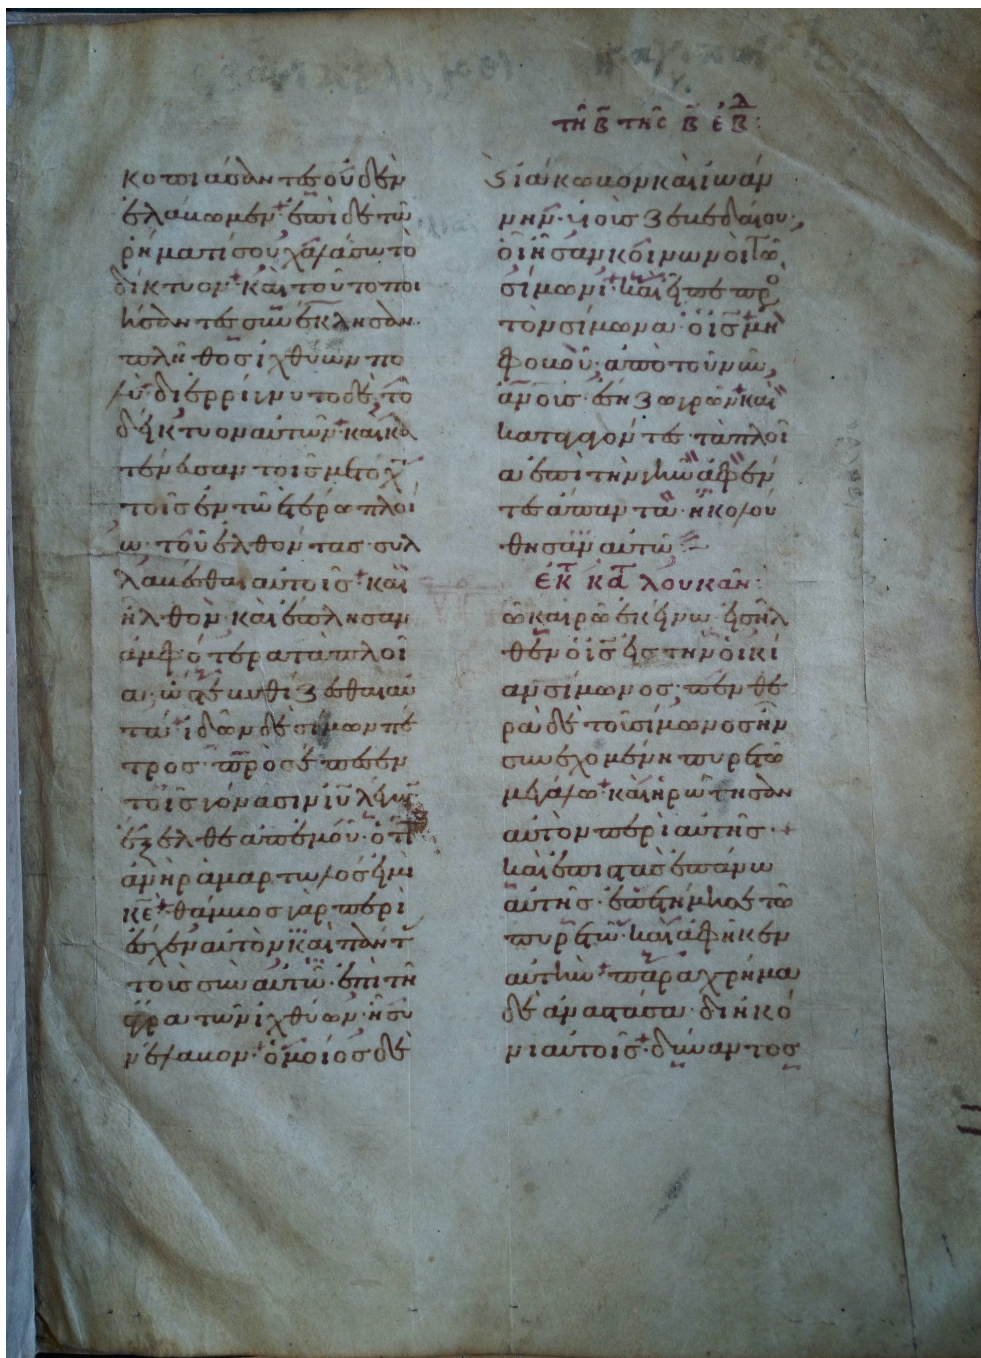 τῆ β̄ τῆς β̄ ἑβδ:
κοπιάσαντες οὐδὲν
ἐλάβωμεν· ἐπὶ δὲ τῶ
ρήματί σου χαλάσω τὸ
δίκτυον· καὶ τοῦτο ποι
ήσαντες συνέκλησαν
πλῆθος ἰχθύων πο
λύ· διερρίγνυτο δὲ τὸ
δίκτυον αὐτῶν· καὶ κα
τένευσαν τοῖς μετόχ
τοῖς ἐν τῶ ἑτέρω πλοί
ω· τοῦ ἐλθόντας συλ
λαβέσθαι αὐτοῖς· καὶ
ἦλθον· καὶ ἔπλησαν
ἀμφότερα τὰ πλοῖ
α· ὥστε βυθίζεσθαι αὐ
τά· ἰδὼν δὲ σίμων πέ
τρος· προσέπεσεν
τοῖς γόνασιν ἰῦ λέγων
ἔξελθε ἀπ' ἐμοῦ· ὅτι
ἀνὴρ ἁμαρτωλός εἰμι
κε· θάμβος γὰρ περι
έσχεν αὐτὸν καὶ πάντ
τοὺς σὺν αὐτῶ· ἐπὶ τῆ
ἄγρα τῶν ἰχθύων· ἧ συ
νέλαβον· ὁμοίως δὲ
ς ἰάκωβον καὶ ἰωάν
νην· υἱοὺς ζεβεδαίου·
οἳ ἦσαν κοινωνοὶ τῶ
σίμωνι· καὶ εἶπε πρ
τὸν σίμωνα ὁ ις μὴ
φοβοῦ· ἀπὸ τοῦ νῦν
ανοις ἔση ζωγρῶν· καὶ
καταγαγόντες τὰ πλοῖ
α ἐπὶ τὴν γῆν ἀφέν
τες ἅπαντα· ἠκολού
θησαν αὐτῶ
ἐκ κατ λουκᾶν:
ῶ καιρῶ ἐκείνω· εἰσῆλ
θεν ὁ ις εἰς τὴν οἰκί
αν σίμωνος· πενθε
ρὰ δὲ τοῦ σίμωνος ἦν
συνεχομένη πυρετῶ
μεγάλω· καὶ ἠρώτησαν
αὐτὸν περὶ αὐτῆς·
καὶ ἐπιστὰς ἐπάνω
αὐτῆς· ἐπετίμησε τῶ
πυρετῶ· καὶ ἀφῆκεν
αὐτήν· παραχρῆμα
δὲ ἀναστᾶσα· διηκό
νει αὐτοῖς· δύναντος